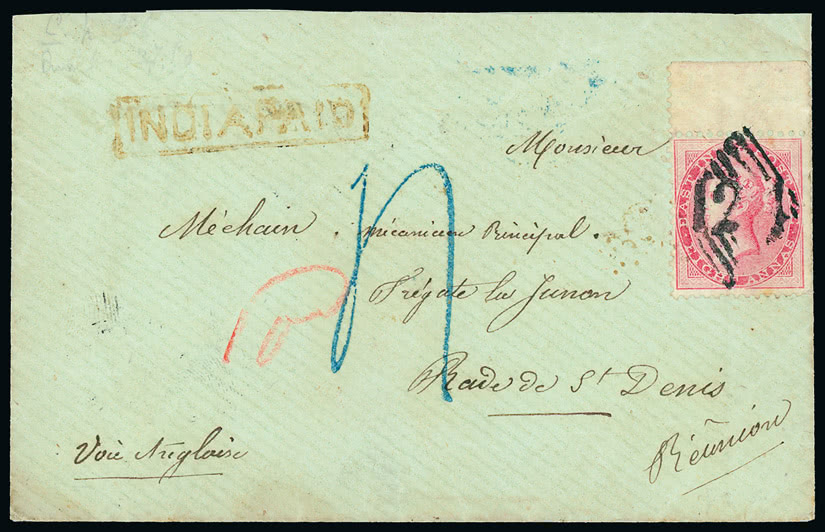 INDIA PAID
Monsieur
Méchain . mécanicien Principal.
Frégate la Junon
Rade de St Denis
Réunion
Voie Anglaise
EAST INDIA
EIGHT ANNAS